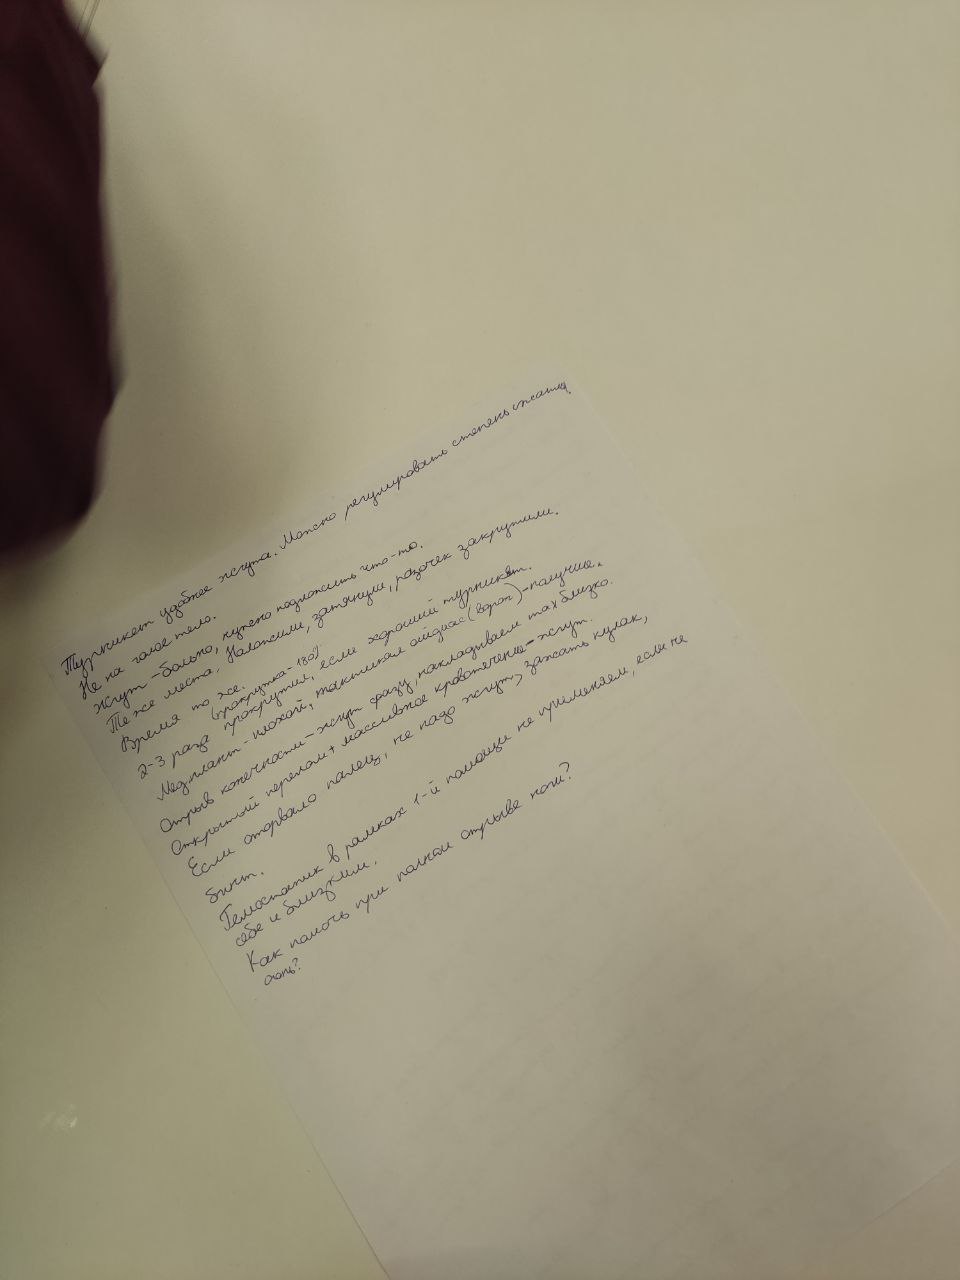 Турникет удобнее жгута. Можно регулировать степень сжатия.
Не на голое тело.
Жгут - больно, нужно подложить что-то.
Те же места. Наложили, затянули, разочек закрутили.
Время то же. (прокрутка - 180°)
2-3 раза прокрутил, если хороший турникет.
Медплант - плохой, тактикал (ворог) - получше.
Отрыв конечности - жгут сразу, накладываем max близко.
Открытый перелом + массивное кровотечение - жгут.
Если оторвало палец, не надо жгут, зажать кулак,
бинт.
Гемостатик в рамках 1-й помощи не применяем, если не
себе и близким.
Как помочь при полном отрыве ноги?